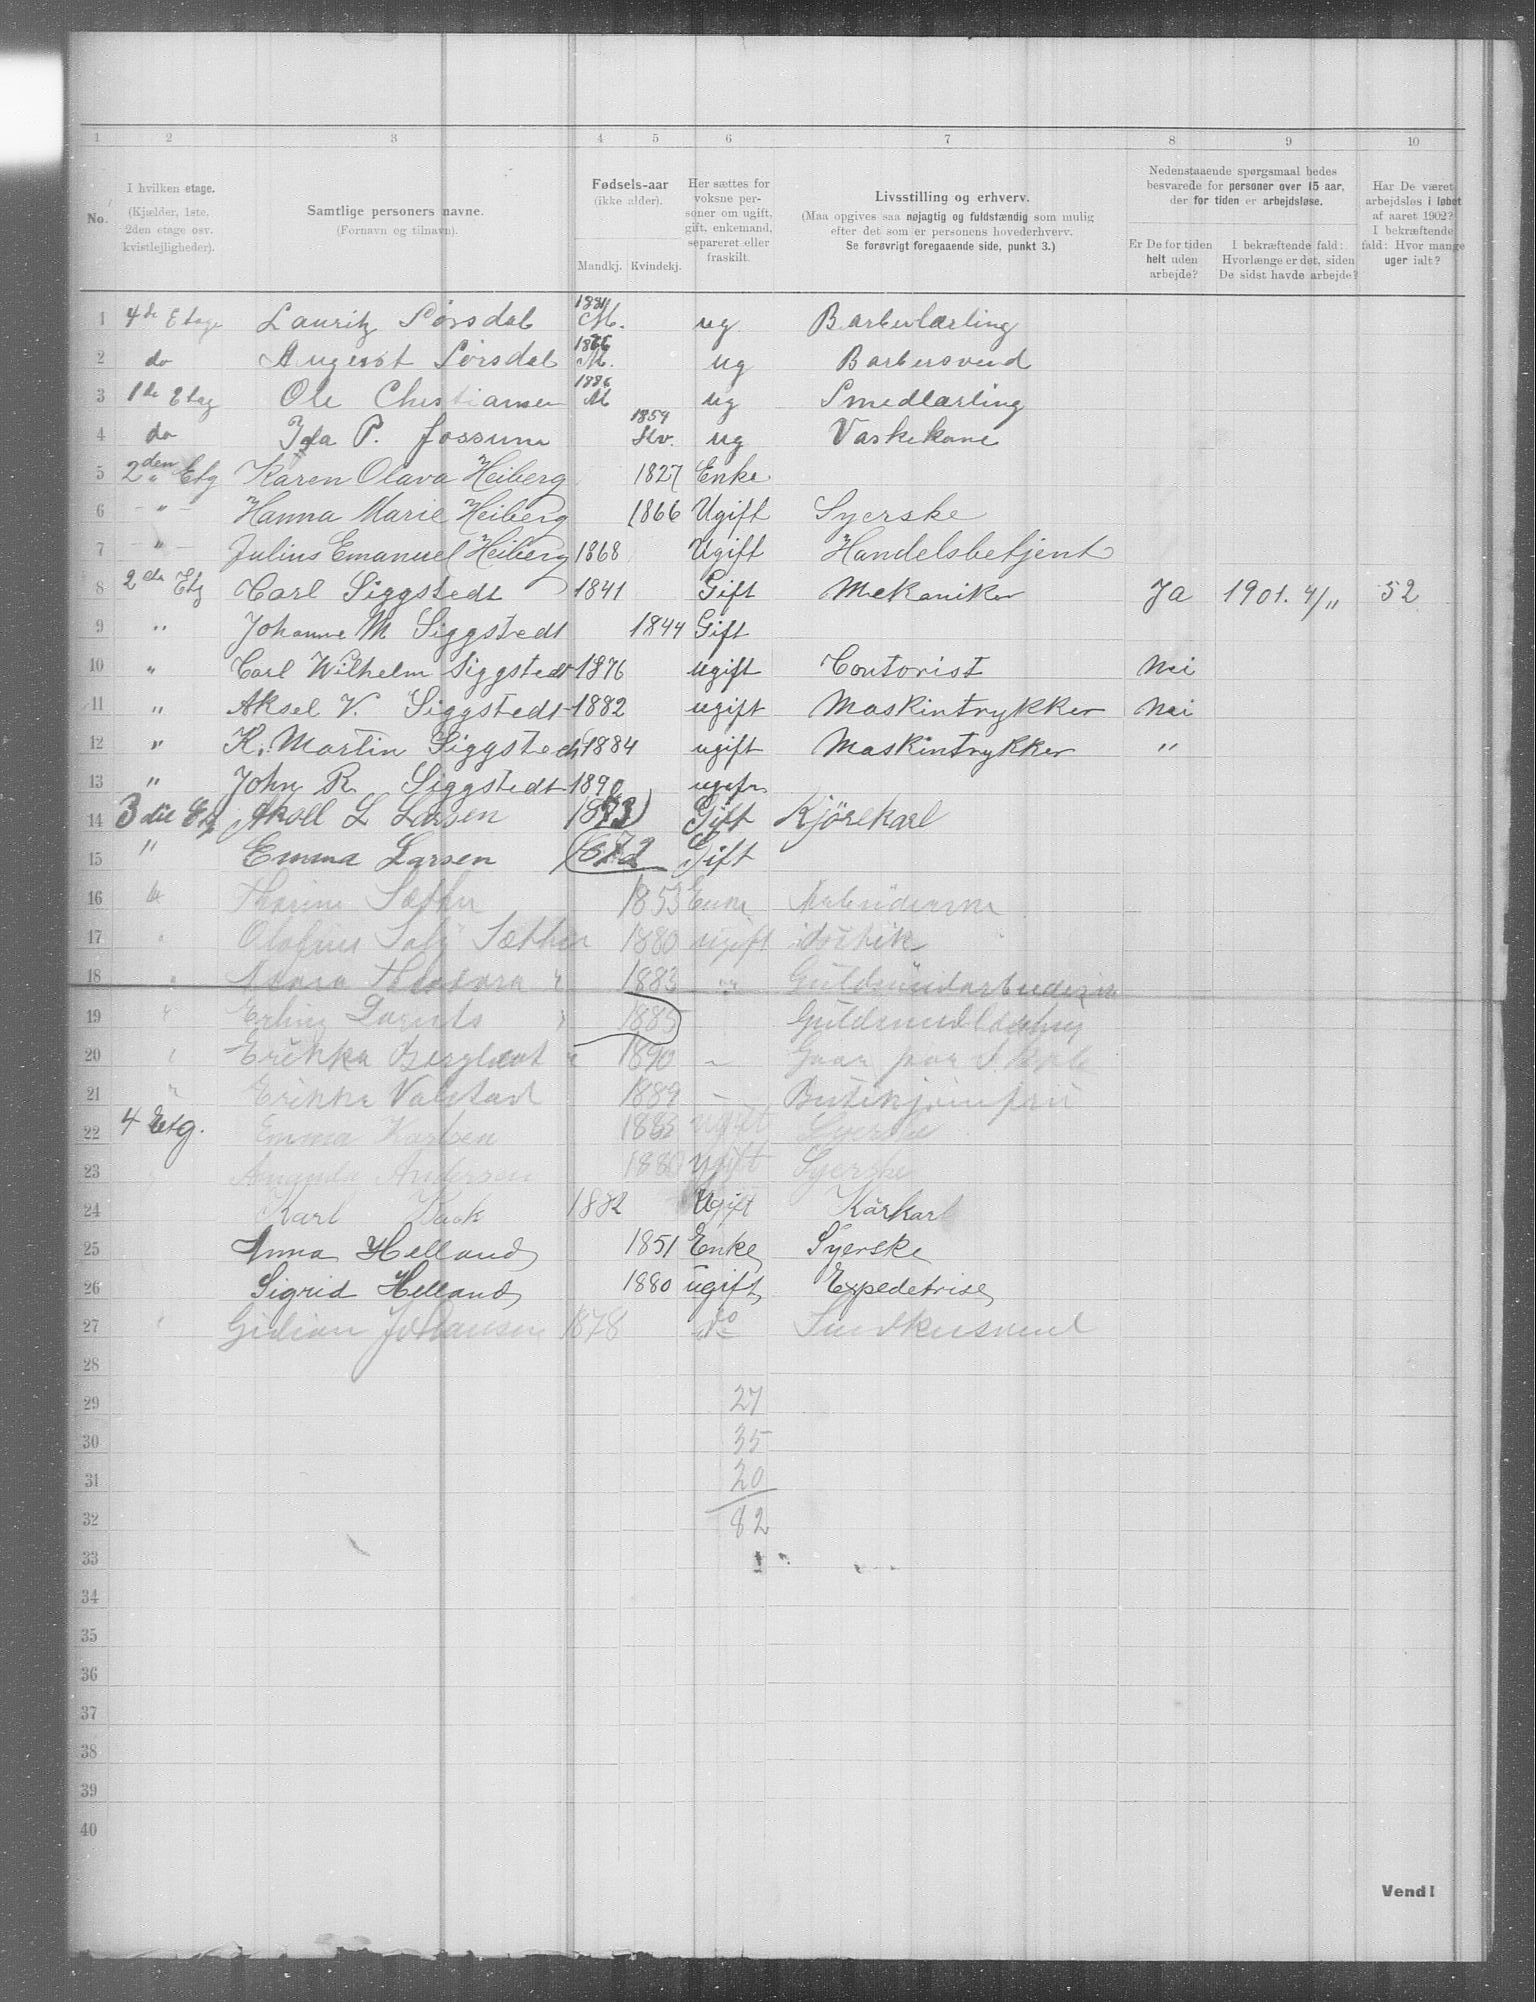 1 2 3 4 5 6 7 8 9 10
No.
I hvilken etage.
(Kjælder, 1ste,
2den etage osv.
kvistlejligheder).
Samtlige personers navne.
(Fornavn og tilnavn).
Fødsels-aar
(ikke alder).
Mandkj. Kvindekj.
Her sættes for
voksne per-
soner om ugift,
gift, enkemand,
separeret eller
fraskilt.
Livsstilling og erhverv.
(Maa opgives saa nøjagtig og fuldstændig som mulig
efter det som er personens hovederhverv.
Se forøvrigt foregaaende side, punkt 3.)
Nedenstaaende spørgsmaal bedes
besvarede for personer over 15 aar,
der for tiden er arbejdsløse.
Er De for tiden
helt uden
arbejde?
I bekræftende fald:
Hvorlænge er det, siden
De sidst havde arbejde?
Har De været
arbejdsløs i løbet
af aaret 1902?
I bekræftende
fald: Hvor mange
uger ialt?
1 4de Etage Lauritz Sørsdal M. ug Barberlærling
2 do August Sørsdal M. ug Barbersvend
3 1de Etag Ole Christiansen 1886 M ug Smedlærling
4 do Ida P. Fossum 1854 Kv. ug Vaskekone
5 2den Etg Karen Olava Heiberg 1827 Enke
6 - " - Hanna Marie Heiberg 1866 Ugift Syerske
7 - " - Julius Emanuel Heiberg 1868 Ugift Handelsbetjent
8 2den Etg Carl Siggstedt 1841 Gift Mekaniker Ja 1901. 4/11 52
9 " Johanne M Siggstedt 1844 Gift
10 " Carl Wilhelm Siggstedt 1876 ugift Contorist Nei
11 " Aksel V. Siggstedt 1882 ugift Maskintrykker Nei
12 " K. Martin Siggstedt 1884 ugift Maskintrykker "
13 " John R. Siggstedt 1890
14 3die Etg L Larsen 1873 Gift Kjörekarl
15 " Emma Larsen 1872 Gift
16 " Sæther 1853 Enke
17 " Olafine Sæther 1880 ugift
18 " Theodora " 1883 "
19 " Erling " 1885
20 " Erikka " 1890 - Gaar paa Skole
21 " Erikka Valstad 1889 - Butikjomfru
22 4 Etg. Emma Karlsen 1883 ugift Syerske
23 " Amanda Andersen 1880 ugift Syerske
24 Karl 1872 Ugift Kørkarl
25 Anna Helland 1851 Enke Syerske
26 Sigrid Helland 1880 ugift Expedetrise
27 " Johansen 1878 do Snedkersvend
28
29 27
30 35
31 20
32 82
33
34
35
36
37
38
39
40
Vend!